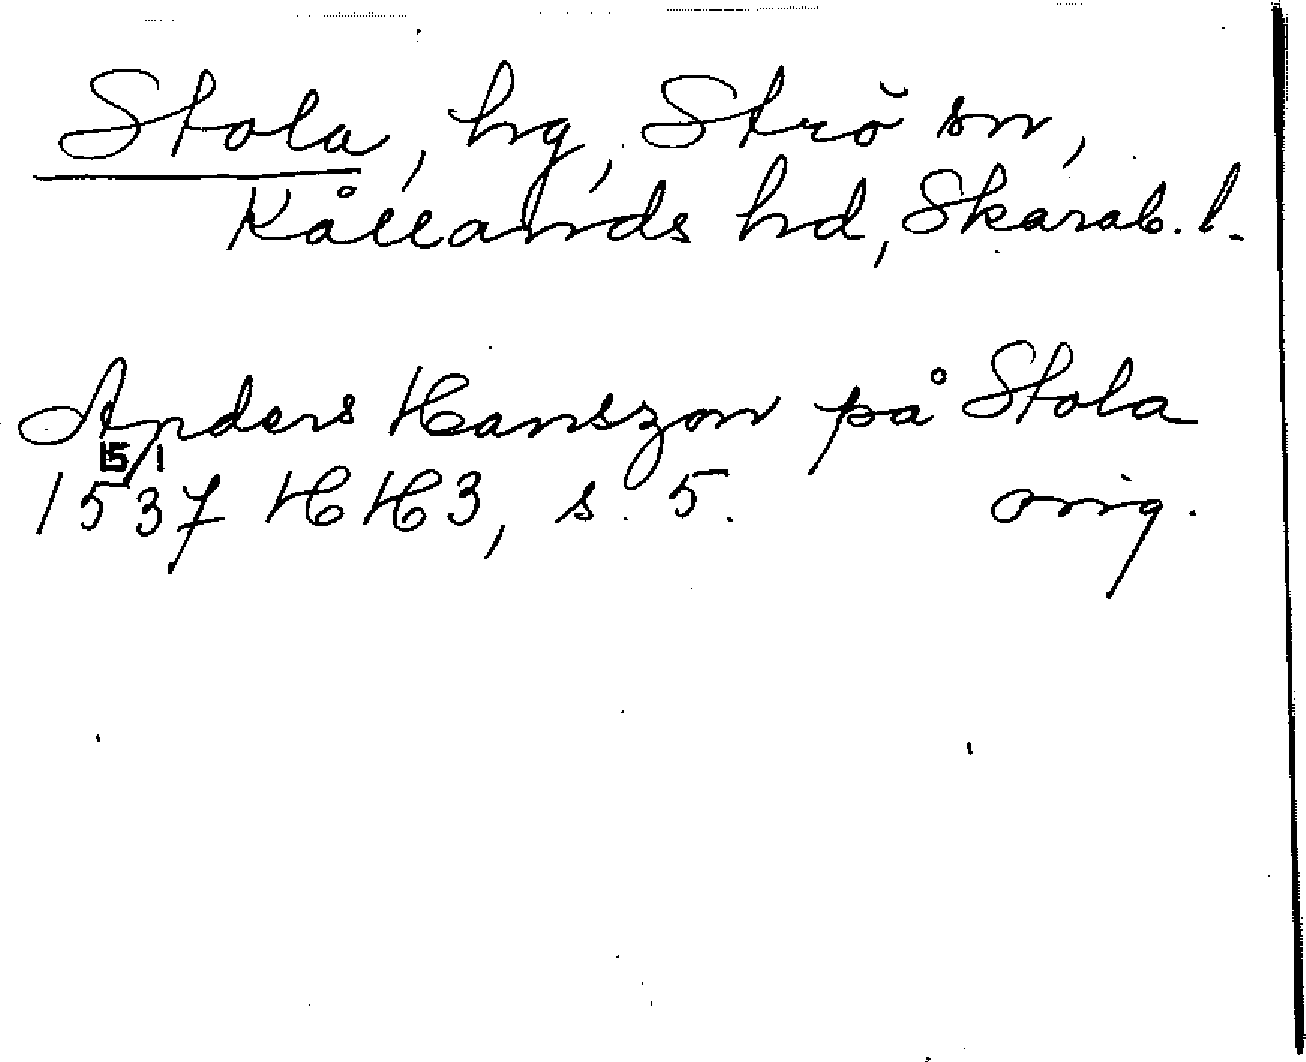 Stola, hg, Strö sn,
Kållands hd, Skarab. l.
Anders Hanszon på Stola
15/1
1537 HH3, s. 5. orig.